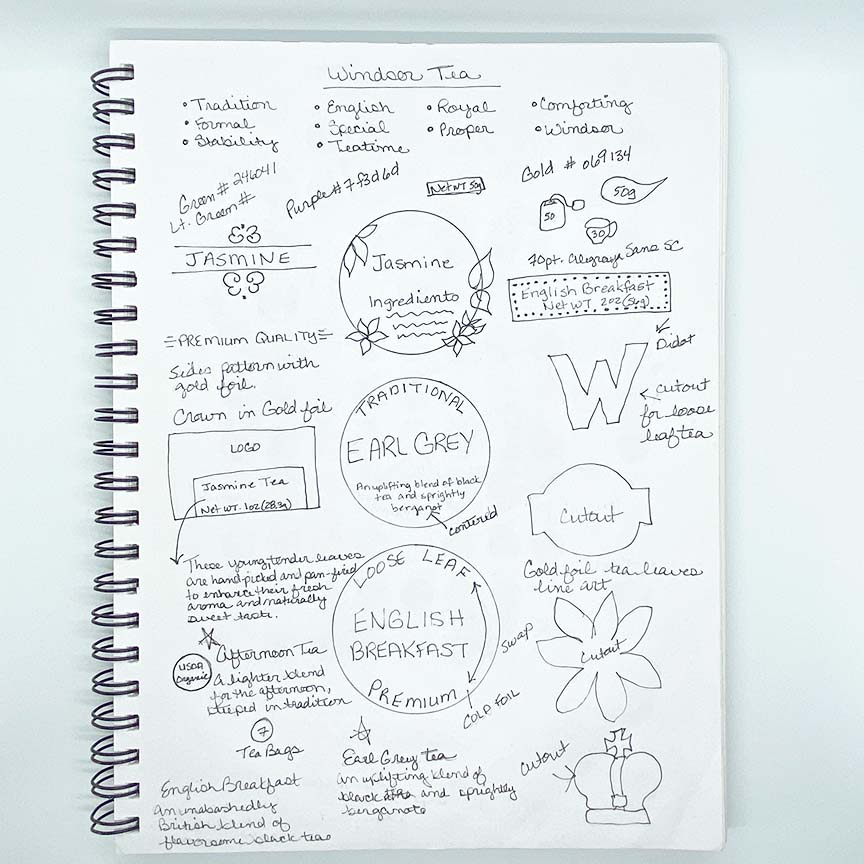 Windsor Tea
• Tradition
• Formal
• Stability
• English
• Special
• Teatime
• Royal
• Proper
• Comforting
• Windsor
Green # 246041
Lt. Green #
Purple # 7f3d6d
Net WT 50g
Gold # 069134
50
50g
30
JASMINE
Jasmine
Ingredients
70pt. Alegreya Sans SC
English Breakfast
Net WT. 2oz (56g)
PREMIUM QUALITY
Sides pattern with
gold foil.
Crown in Gold foil
LOGO
Jasmine Tea
Net WT. 1oz (28.3g)
TRADITIONAL
EARL GREY
An uplifting blend of black
tea and sprightly
bergamot
centered
Didot
W
cutout
for loose
leaf tea
Cutout
These young, tender leaves
are hand-picked and pan-fired
to enhance their fresh
aroma and naturally
sweet taste.
LOOSE LEAF
ENGLISH
BREAKFAST
PREMIUM
swap
COLD FOIL
Gold foil tea leaves
line art
Cutout
USDA
Organic
Afternoon Tea
A lighter blend
for the afternoon,
steeped in tradition
7
Tea Bags
Earl Grey tea
an uplifting blend of
black and sprightly
bergamote
cutout
English Breakfast
an unabashedly
British blend of
flavorsome black teas